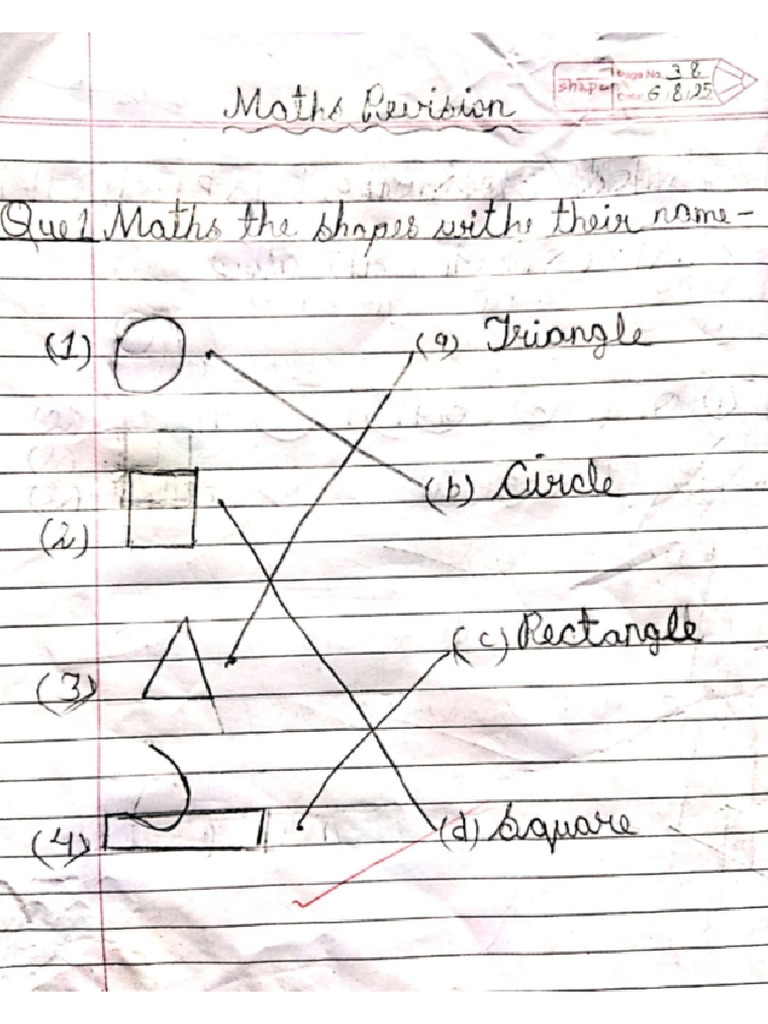 Shape Page No. 38
Date 6.8.25
Maths Revision
Que1 Maths the shapes withe their name-
(1) (a) Triangle
(b) Circle
(2)
(c) Rectangle
(3)
(4) (d) Square